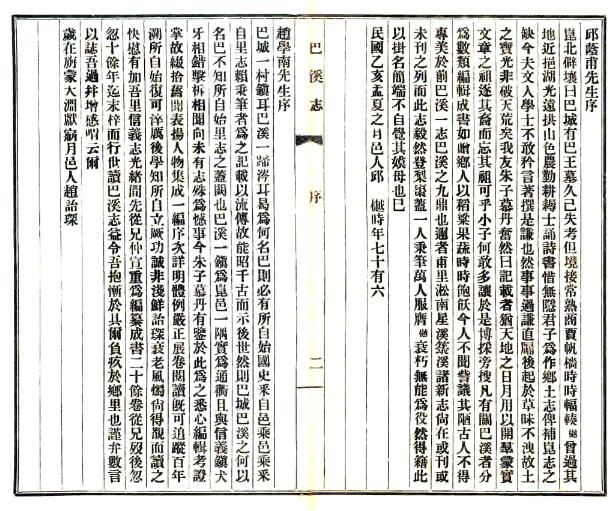 邱蔭甫先生序
崑北僻壤曰巴城有巴王墓久已失考但境接常熟商賈帆檣時時輻輳樾曾過其
地近挹湖光遠拱山色農勤耕耨士誦詩書惜無隱君子爲作鄉土志俾補崑志之
缺今夫文人學士不敢矜言著撰是謙也然事事過謙直屬後起於草昧不洩故土
之寶光非破天荒矣我友朱子慕丹奮然曰記載者猶天地之日月用以開羣蒙實
文章之祖逐其裔而忘其祖可乎小子何敢多讓於是博採旁搜凡有關巴溪者分
爲數類編輯成書如嚐鄉人以稻粱果蔬時時飽飫今人不聞訾議其陋古人不得
專美於前巴溪一志巴溪之九鼎也邇者甫里淞南星溪菉溪諸新志尚在或刊或
未刊之列而此志毅然登梨棗蓋一人秉筆萬人服膺樾衰朽無能爲役然得藉此
以掛名簡端不自覺其嫫母也已
民國乙亥孟夏之月邑人邱樾時年七十有六
巴溪志
序
二
趙學南先生序
巴城一村鎮耳巴溪一歸涔耳曷爲何名巴則必有所自始國史釆自邑乘邑乘釆
自里志賴秉筆者爲之記載以流傳故能昭千古而示後世然則巴城巴溪之何以
名巴不知所自始里志之蓋闕也巴溪一鎮爲崑邑一隅實爲通衢日與信義鎮犬
牙相錯擊柝相聞向未有志殊爲憾事今朱子慕丹有鑒於此爲之悉心編輯考證
掌故綴拾舊聞表揚人物集成一編序次詳明體例嚴正展卷閱讀旣可追蹤百年
溯所自始復可淬厲後學知所自立厥功誠非淺鮮詒琛衰老風燭尚得覩而讀之
快慰有加吾里信義志光緒間先從兄仲宣重爲編纂成書二十餘卷從兄歿後忽
忽十餘年迄未梓而行世讀巴溪志益令吾抱慚於其爾負疚於鄉里也謹弁數言
以誌吾過幷增感喟云爾
歲在旃蒙大淵獻病月邑人趙詒琛